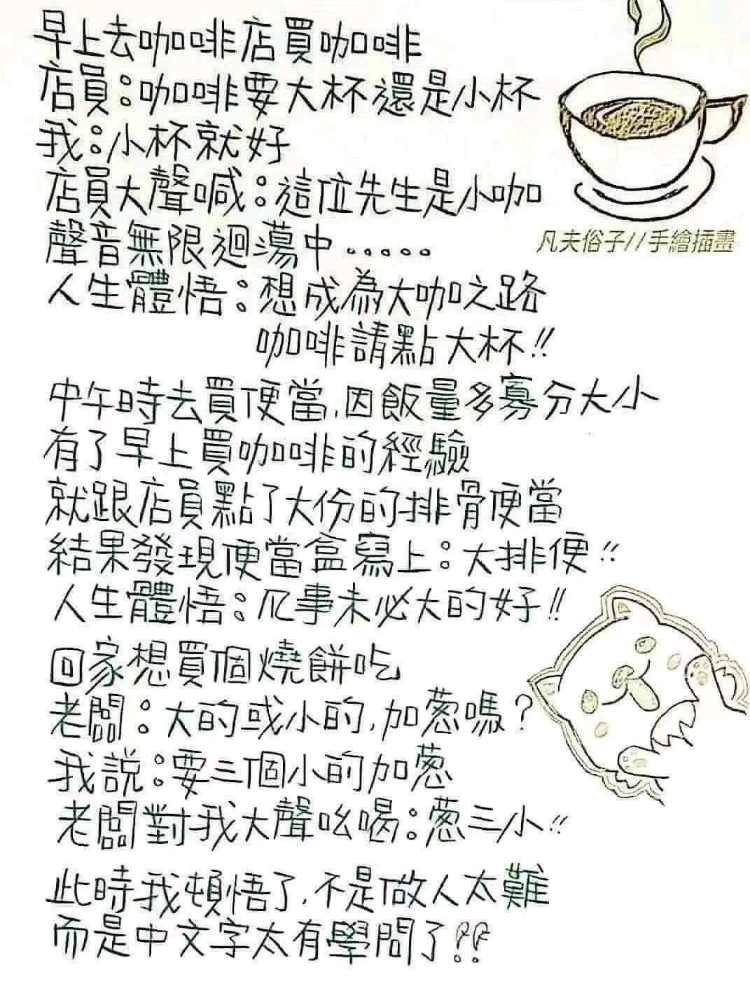 早上去咖啡店買咖啡
店員：咖啡要大杯還是小杯
我：小杯就好
店員大聲喊：這位先生是小咖
聲音無限迴蕩中.....
凡夫俗子//手繪插畫
人生體悟：想成為大咖之路
咖啡請點大杯!!
中午時去買便當,因飯量多寡分大小
有了早上買咖啡的經驗
就跟店員點了大份的排骨便當
結果發現便當盒寫上：大排便!!
人生體悟：凡事未必大的好!!
回家想買個燒餅吃
老闆：大的或小的,加蔥嗎?
我說：要三個小的加蔥
老闆對我大聲吆喝：蔥三小!!
此時我頓悟了,不是做人太難
而是中文字太有學問了??